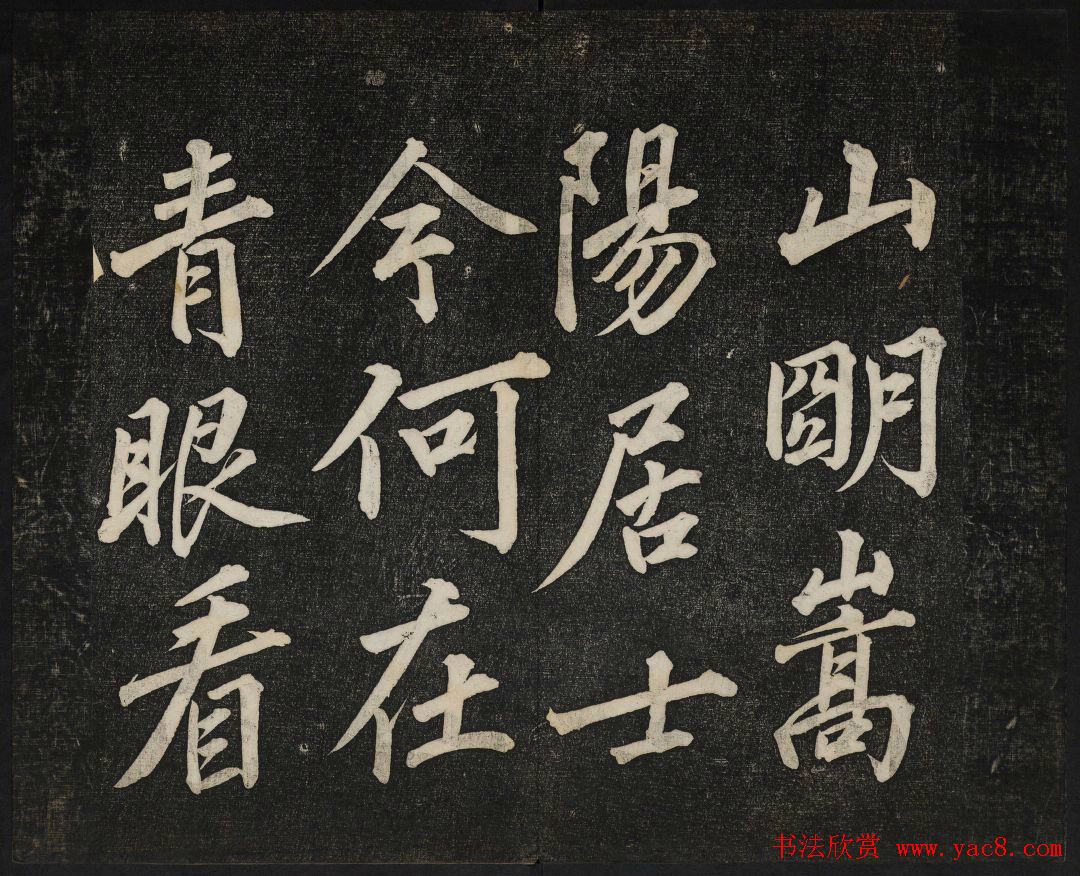 山朙嵩
陽居士
今何在
青眼看
书法欣赏 www.yac8.com